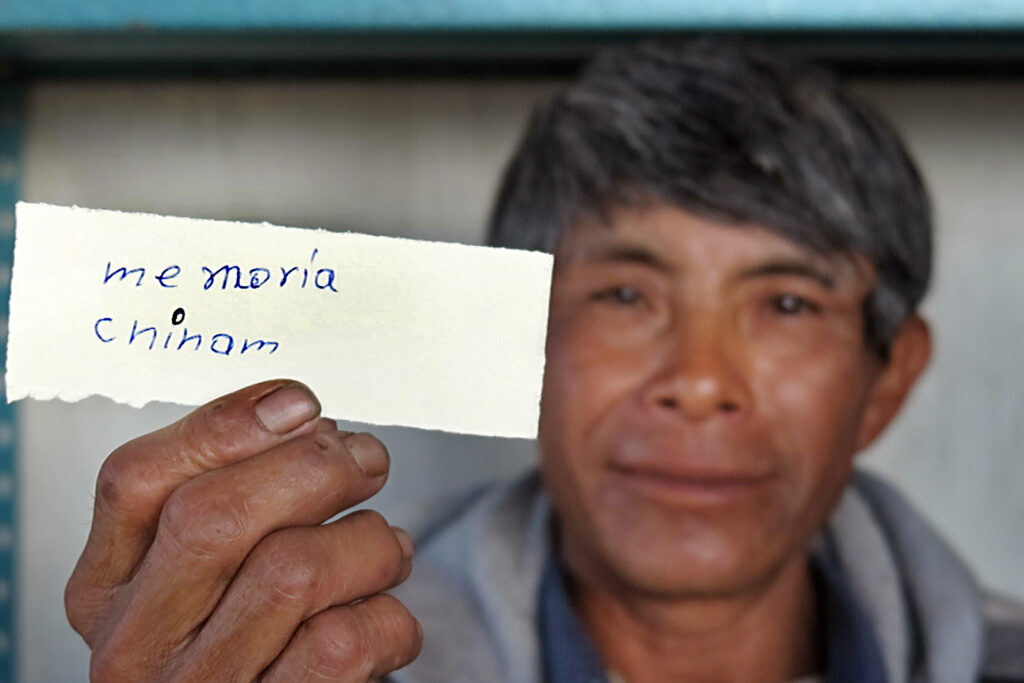 memoría
chinam